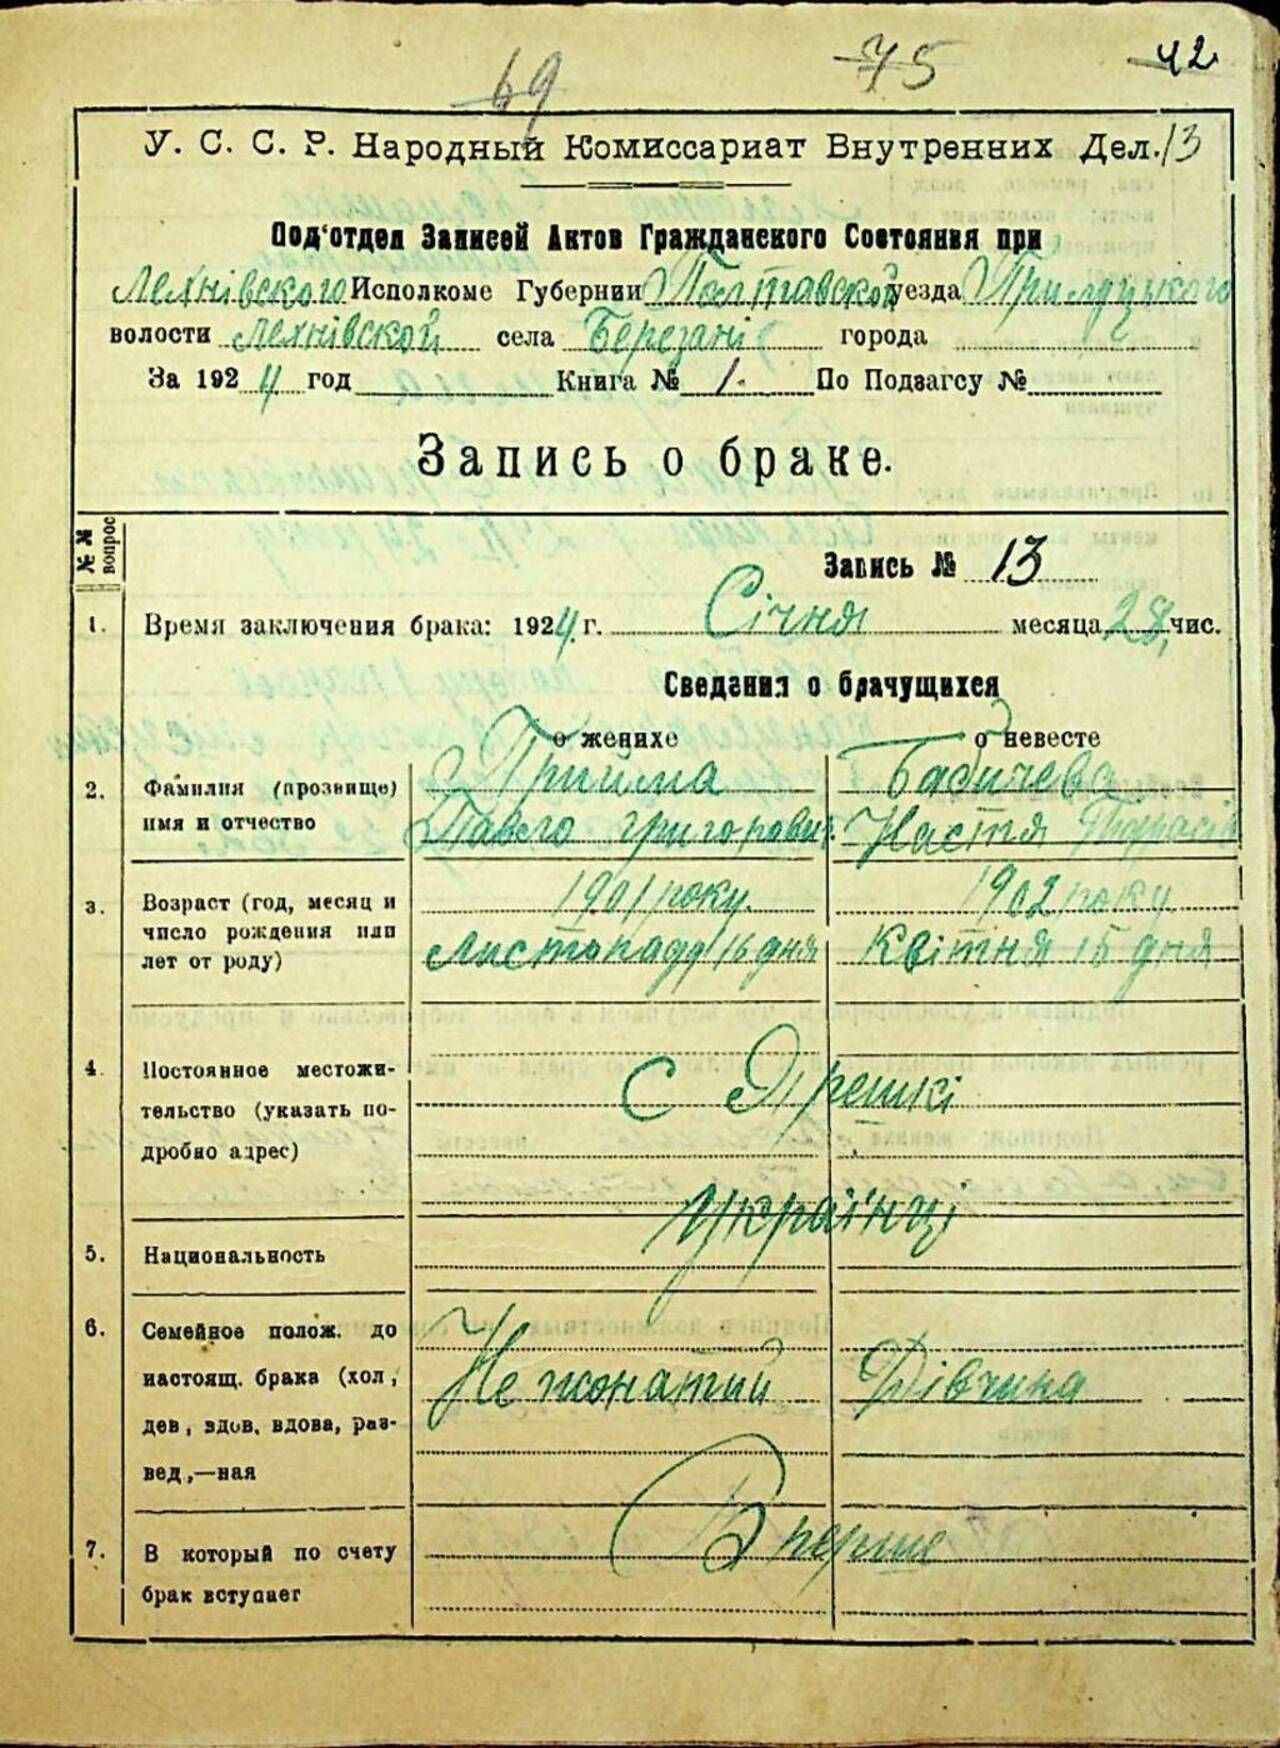 69 75 42
У. С. С. Р. Народный Комиссариат Внутренних Дел. 13
Под'отдел Записей Актов Гражданского Состояния при
Лехнівского Исполкоме Губернии Полтавской уезда Прилуцького
волости Лехнівской села Березані города
За 1924 год Книга № 1. По Подзагсу №
Запись о браке.
№№ вопрос
Запись № 13
1. Время заключения брака: 1924 г. Січня месяца 28 чис.
Сведения о брачущихся
о женихе о невесте
2. Фамилия (прозвище) Прийма Бабичева
имя и отчество Павло Григорович Настя Тарасів
3. Возраст (год, месяц и 1901 року. 1902 року
число рождения или
лет от роду) Листопаду 16 дня Квітня 15 дня
4. Постоянное местожи- С Ярешкі
тельство (указать по-
дробно адрес)
українці
5. Национальность
6. Семейное полож. до
настоящ. брака (хол, Не жонатий Дівчина
дев, вдов. вдова, раз-
вед,—ная
7. В который по счету Вперше
брак вступает